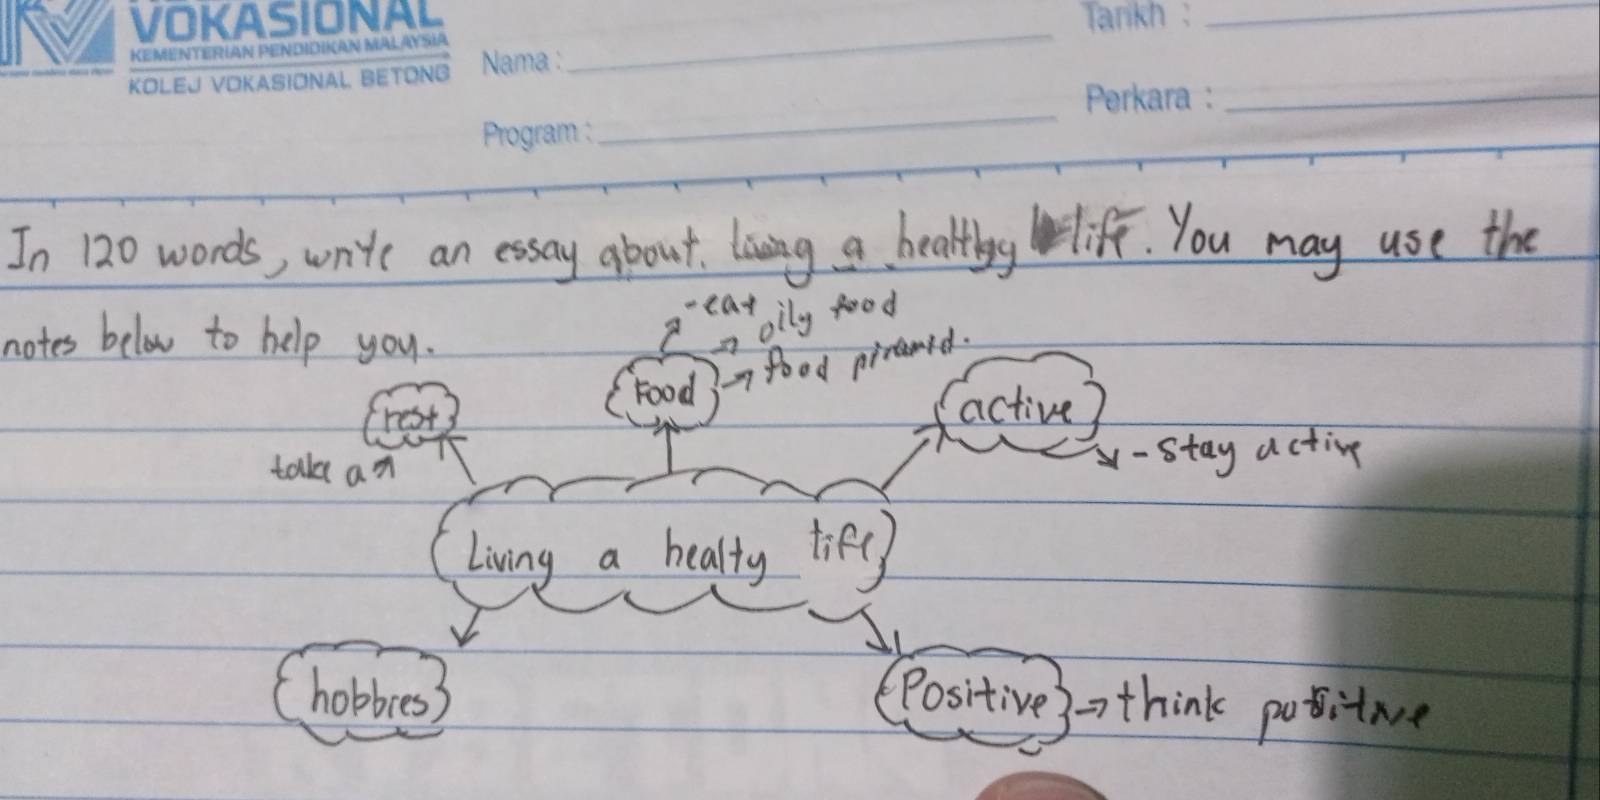 VOKASIONAL
KEMENTERIAN PENDIDIKAN MALAYSIA
KOLEJ VOKASIONAL BETONG
Nama :
Tarikh :
Program :
Perkara :
In 120 words, write an essay about living a healthy life. You may use the
notes below to help you.
-eat
oily food
food piramid.
Food
rest
take a
active
- stay active
Living a healty life
hobbies
Positive
think positive